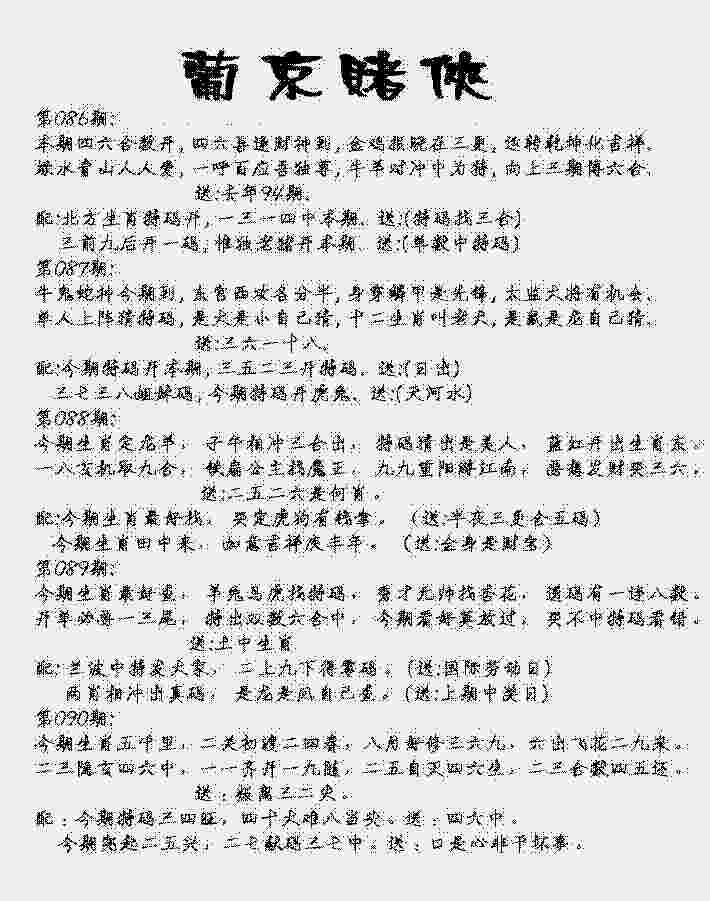 葡京賭俠
第086期:
本期四六合数开,四六喜逢财神到,金鸡报晓在三更,逆转乾坤化吉祥、
绿水青山人人爱,一呼百应吾独尊,牛羊对冲中为特,向上三期博六合、
送:去年94期、
配:北方生肖特码开,一三一四中本期、送:(特码找三合)
三前九后开一码,惟独老猪开本期、送:(单数中特码)
第087期:
牛鬼蛇神今期到,东宫西安各分半,身穿鳞甲是先锋,太监大将有机会、
单人上阵猜特码,是大是小自己猜,十二生肖叫老大,是鼠是龙自己猜、
送:三六一十八、
配:今期特码开本期,三五二三开特码、送:(日出)
三七三八姐妹码,今期特码开虎兔、送:(天河水)
第088期:
今期生肖定龙羊, 子午相冲三合出, 特码猜出是美人, 蓝红开出生肖东。
一八玄机取九合, 铁扇公主找魔王, 九九重阳游江南, 恶想发财买三六,
送:二五二六是何肖。
配:今期生肖最好找, 买定虎狗有钱拿。(送:半夜三更会五码)
今期生肖田中来, 如意吉祥庆丰年。(送:全身是财宝)
第089期:
今期生肖最好查, 羊兔马虎找特码, 秀才元帅找杏花, 透码有一连八数。
开单必尊一三尾, 特出双数六合中, 今期看好莫放过, 买不中特码看错。
送:土中生肖
配:兰波中特发大家, 二上九下得零码。(送:国际劳动日)
两肖相冲出真码, 是龙是凤自己查。(送:上期中奖日)
第090期:
今期生肖五中里, 二关初渡二四春, 八月好修三六九, 六出飞花二九来。
二三隐玄四六中, 一一齐开一九随, 二五自灭四六生, 二三合数四五还。
送:振离三二尖。
配:今期特码三四旺, 四十大难八当头。送:四六中。
今期突起二五兴, 二七献码三七中。送:口是心非干坏事。